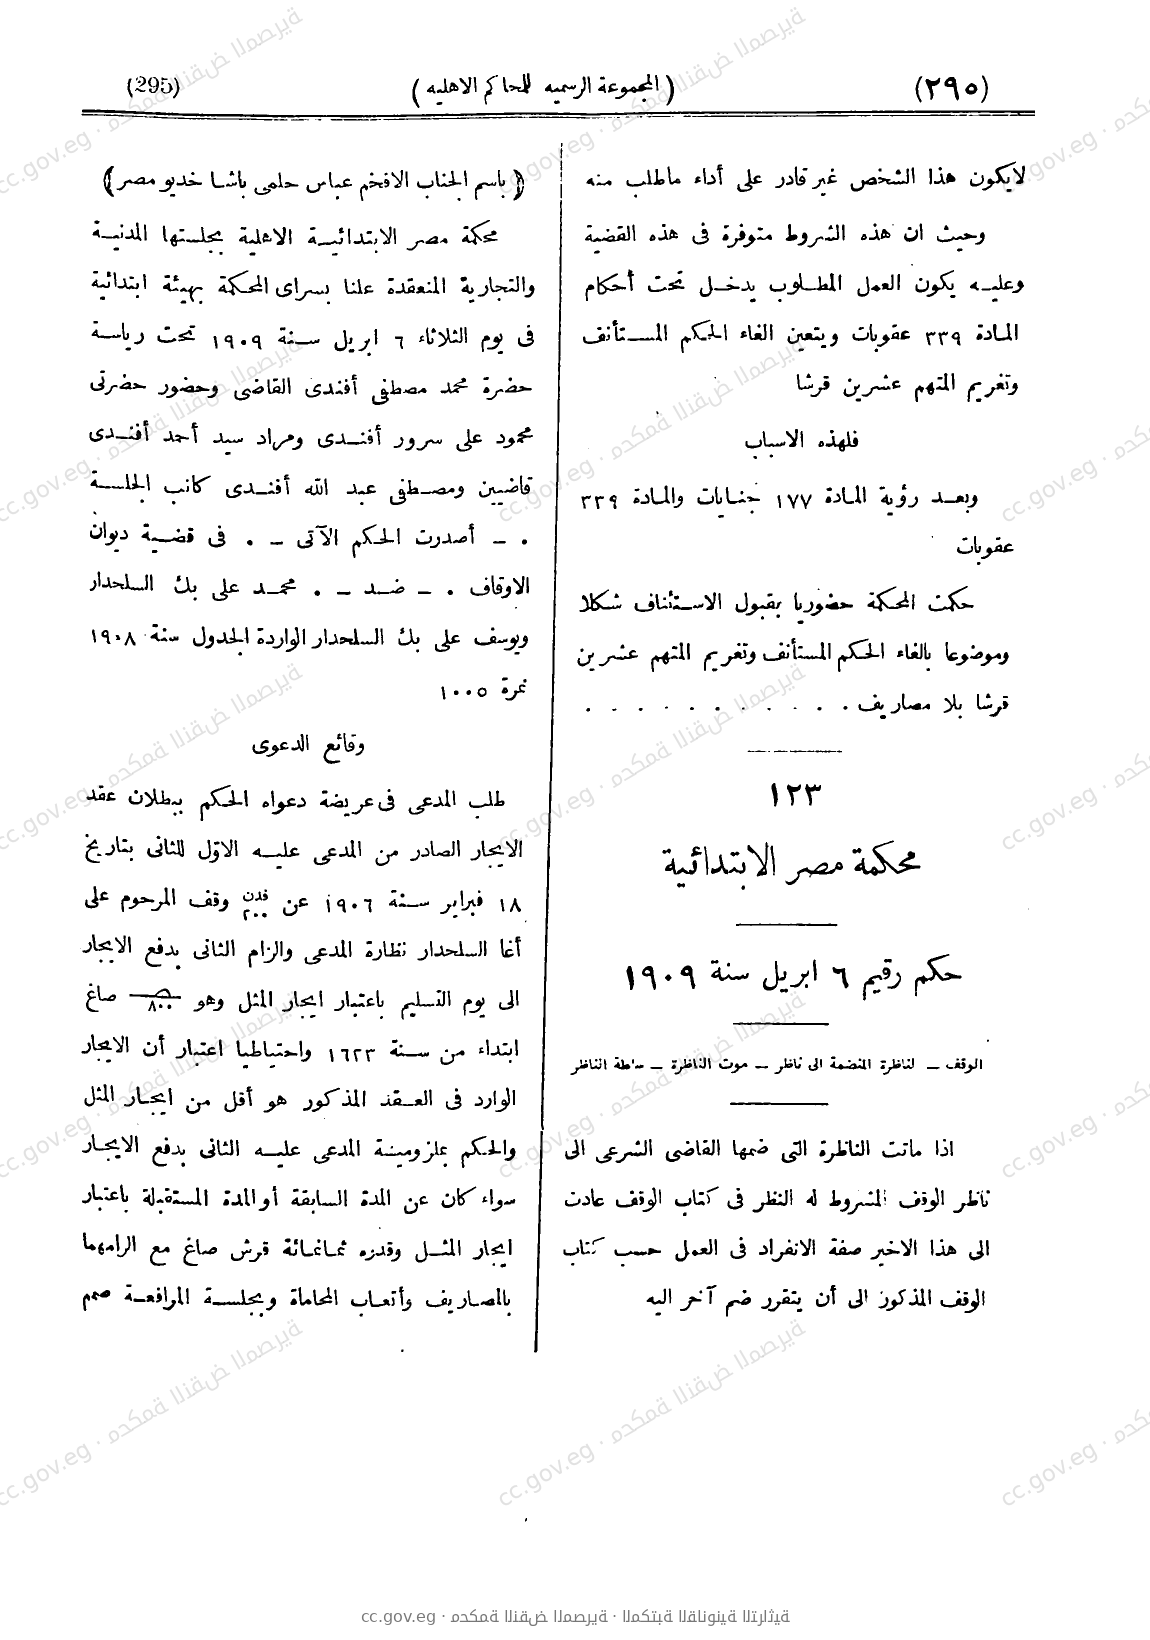 (٢٩٥) (المجموعة الرسميه للمحاكم الاهليه) (295)
لايكون هذا الشخص غير قادر على أداء ماطلب منه
وحيث ان هذه الشروط متوفرة فى هذه القضية
وعليـه يكون العمل المطلوب يدخـل تحت أحكام
المادة ٣٣٩ عقوبات ويتعين الغاء الحكم المستأنف
وتغريم المتهم عشرين قرشا
فلهذه الاسباب
وبعـد رؤية المادة ١٧٧ جنايات والمادة ٣٣٩
عقوبات
حكمت المحكمة حضوريا بقبول الاستئناف شكلا
وموضوعا بالغاء الحكم المستأنف وتغريم المتهم عشرين
قرشا بلا مصاريف . . . . . . . . . . .
١٢٣
محكمة مصر الابتدائية
حكم رقيم ٦ ابريل سنة ١٩٠٩
الوقف ــ لناظرة المنضمة الى ناظر ــ موت الناظرة ــ ساطة الناظر
اذا ماتت الناظرة التى ضمها القاضى الشرعى الى
ناظر الوقف المشروط له النظر فى كتاب الوقف عادت
الى هذا الاخير صفة الانفراد فى العمل حسب كتاب
الوقف المذكور الى أن يتقرر ضم آخر اليه
(باسم الجناب الافخم عباس حلمى باشا خديو مصر)
محكمة مصر الابتدائيـة الاهلية بجلستها المدنيـة
والتجارية المنعقدة علنا بسراى المحكمة بهيئة ابتدائية
فى يوم الثلاثاء ٦ ابريل سنة ١٩٠٩ تحت رياسة
حضرة محمد مصطفى أفندى القاضى وحضور حضرتى
محمود على سرور أفنـدى ومراد سيد أحمد أفنـدى
قاضيين ومصطفى عبد الله أفنـدى كاتب الجلسـة
. ــ أصدرت الحكم الآتى ــ . فى قضـية ديوان
الاوقاف . ــ ضـد ــ . محمـد على بك السلحدار
ويوسف على بك السلحدار الواردة الجدول سنة ١٩٠٨
نمرة ١٠٠٥
وقائع الدعوى
طلب المدعى فى عريضة دعواه الحكم ببطلان عقد
الايجار الصادر من المدعى عليـه الاوّل للثانى بتاريخ
١٨ فبراير سنة ١٩٠٦ عن فدن ٢٠٠ وقف المرحوم على
أغا السلحدار نظارة المدعى والزام الثانى بدفع الايجار
الى يوم التسليم باعتبار ايجار المثل وهو ٨٠٠ صاغ
ابتداء من سـنة ١٦٢٣ واحتياطيا اعتبار أن الايجار
الوارد فى العـقد المذكور هو أقل من ايجار المثل
والحكم بملزومية المدعى عليـه الثانى بدفع الايجـار
سواء كان عن المدة السابقة أو المدة المستقبلة باعتبار
ايجار المثـل وقدره ثمانمائة قرش صاغ مع الزامهما
بالمصاريف وأتعـاب المحاماة وبجلسـة المرافعـة صمم